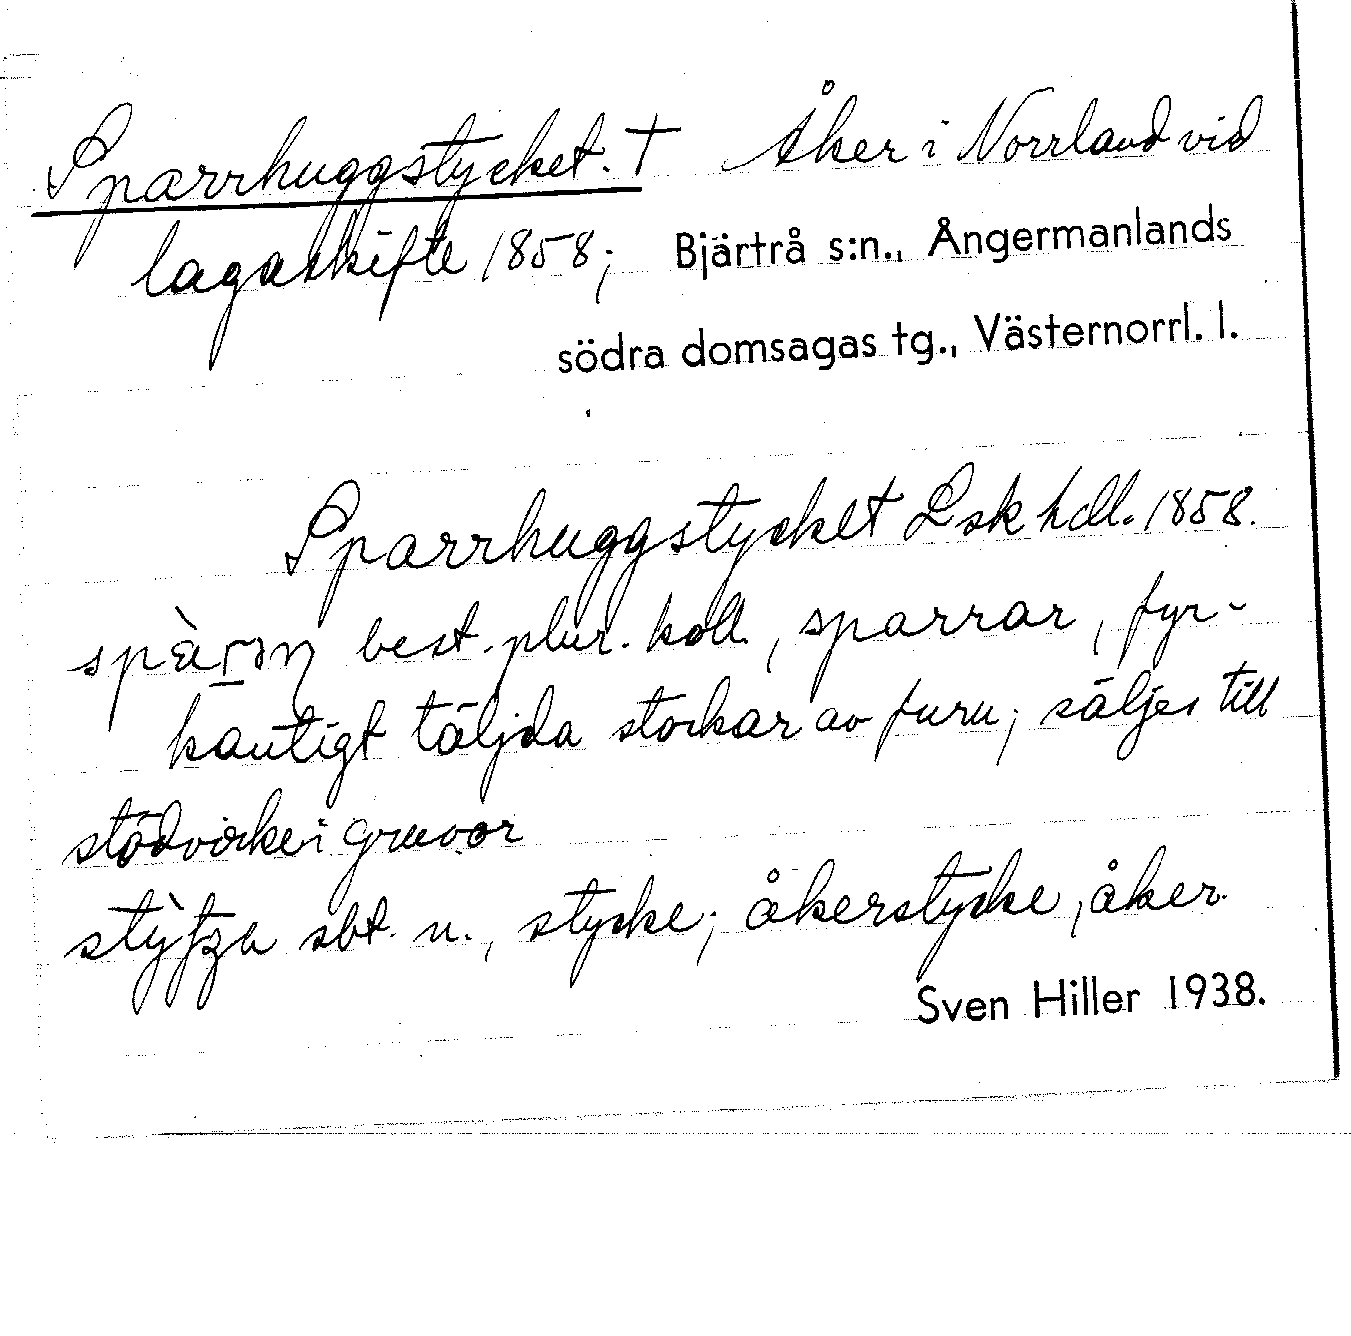 Sparrhuggstycket. † Åker i Norrland vid
lagaskifte 1858; Bjärtrå s:n., Ångermanlands
södra domsagas tg., Västernorrl. l.
Sparrhuggstycket Lsk hdl. 1858.
best. plur. koll., sparrar, fyr-
kantigt täljda stockar av furu; säljes till
stödvirke i gruvor
sbt. n., stycke; åkerstycke, åker.
Sven Hiller 1938.